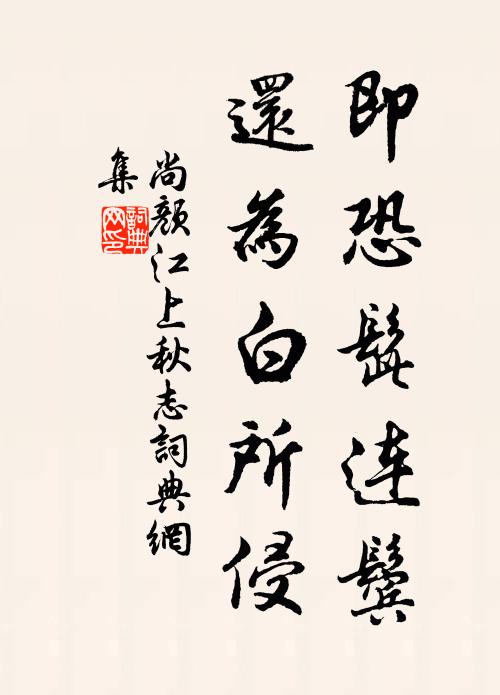 即恐髭连鬓
還為白所侵
尚顏江上秋志詞典網
集
詞典网印